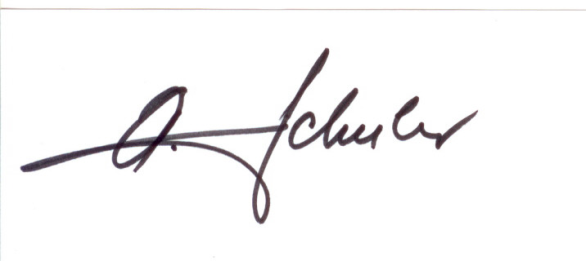 A. Schuler